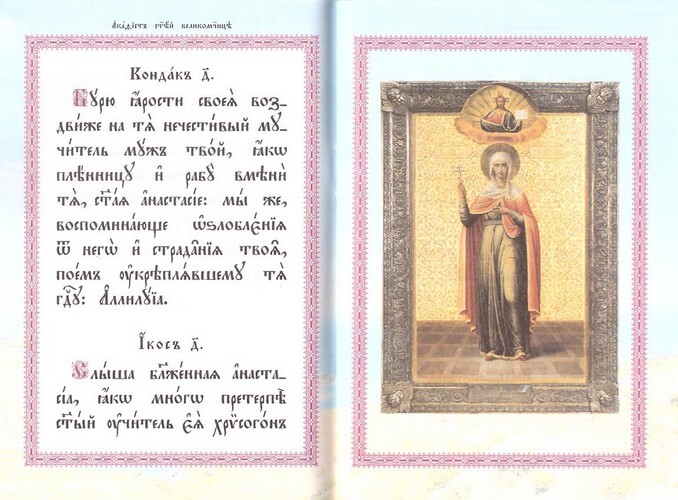 А҆ка́ѳїстъ ст҃ѣ́й великомч҃ницѣ
Конда́къ д҃.
Бу́рю ꙗ҆́рости своеѧ̀ воз_
дви́же на тѧ̀ нечести́вый мꙋ_
чи́тель мꙋ́жъ тво́й, ꙗ҆́кѡ
плѣ́нницꙋ и҆ рабꙋ̀ вмѣни́
тѧ̀, ст҃а́ѧ а҆настасі́е: мы́ же,
воспомина́юще ѡ҆ѕлобле́нїѧ
ѿ негѡ̀ и҆ страда̑нїѧ твоѧ̑,
пое́мъ ᲂу҆крѣплѧ́вшемꙋ тѧ̀
гдⷭ҇ꙋ: А҆ллилꙋ́їа.
І҆́косъ д҃.
Слы́ша бл҃же́ннаѧ а҆наста_
сі́а, ꙗ҆́кѡ мно́гѡ претерпѣ̀
ст҃ы́й ᲂу҆чи́тель є҆ѧ̀ хрѷсого́нъ